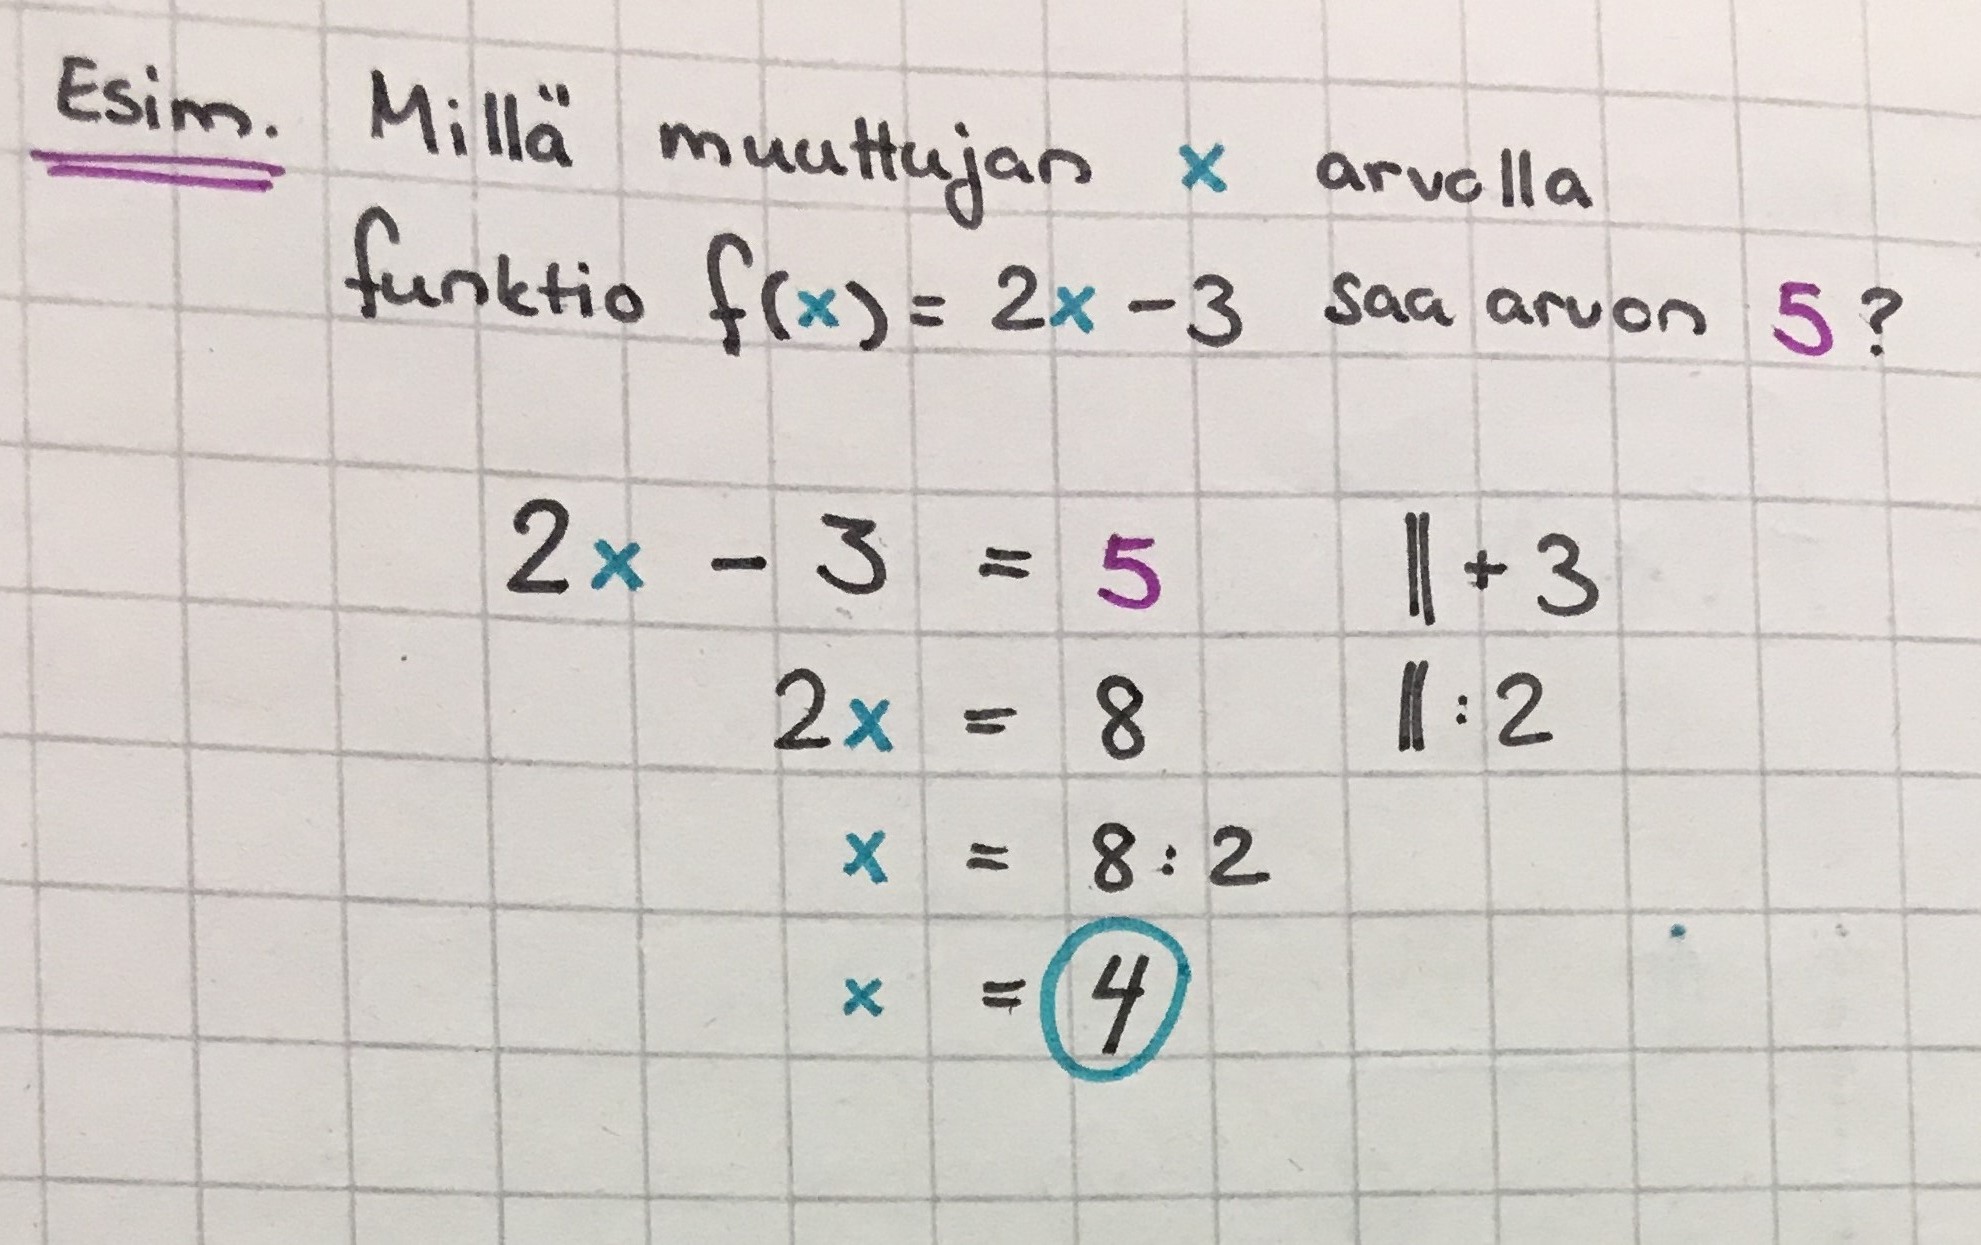 Esim. Millä muuttujan x arvolla
funktio f(x) = 2x - 3 saa arvon 5?
2x - 3 = 5 || + 3
2x = 8 || : 2
x = 8 : 2
x = 4